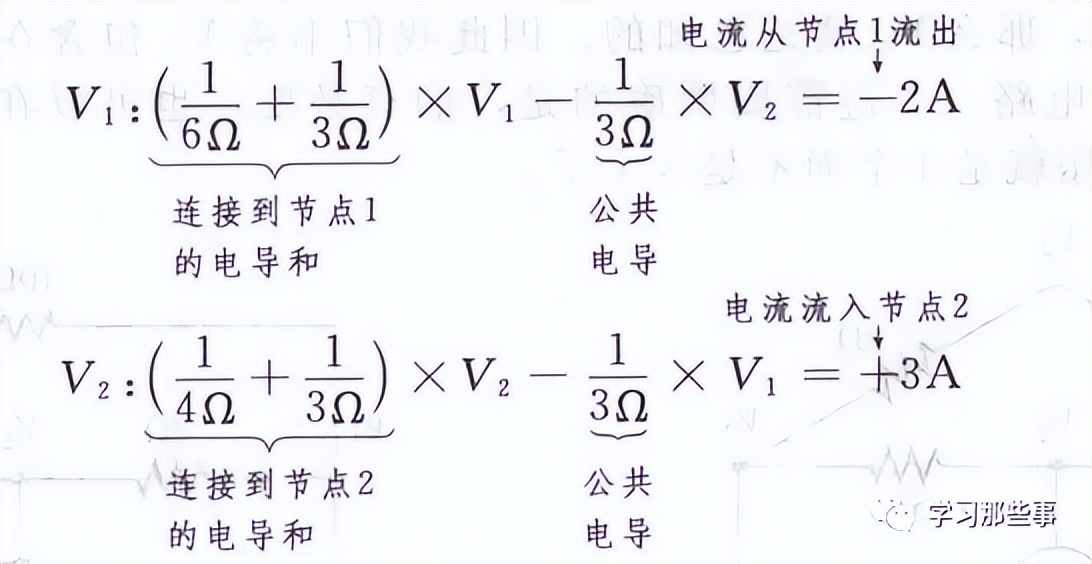 电流从节点1流出
V₁:(1/6Ω + 1/3Ω) × V₁ − 1/3Ω × V₂ = −2A
连接到节点1 公共
的电导和 电导
电流流入节点2
V₂:(1/4Ω + 1/3Ω) × V₂ − 1/3Ω × V₁ = +3A
连接到节点2 公共
的电导和 电导
学习那些事